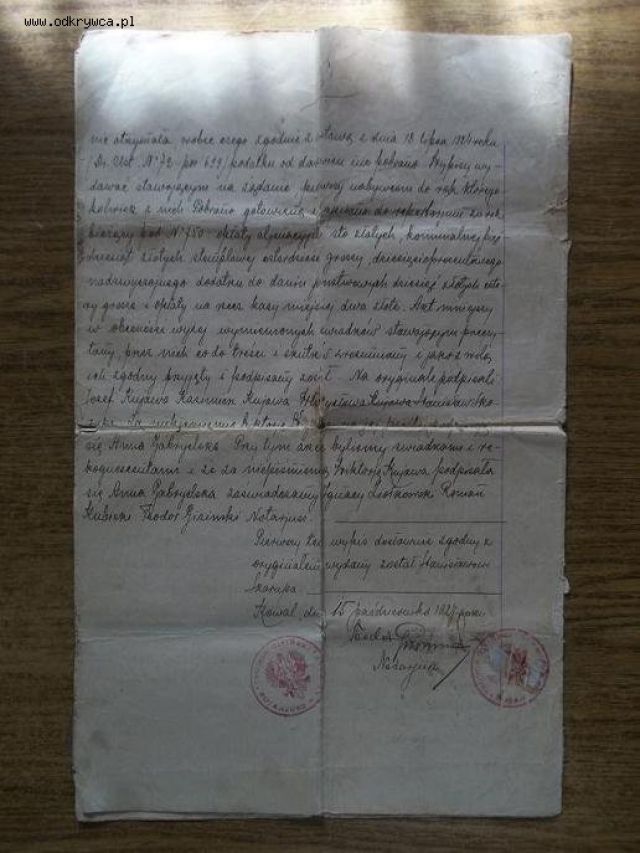 www.odkrywca.pl
nie otrzymała wobec czego zgodnie z ustawą z dnia 18 lipca 1924 roku
Dz. Ust. N° 72 poz 699/ podatku od darowizn nie pobrano. Wypisy wy-
dawać stawającym na żądanie pierwszy nabywcom do rąk którego
kolwiek z nich Pobrano gotowizną i wpisano do repertorium za rok
bieżący pod N° 750 opłaty alienacyjnej sto złotych, komunalnej pięć
dziesiąt złotych stemplowej czterdzieści groszy, dziesięcioprocentowego
nadzwyczajnego dodatku do danin państwowych dziesięć złotych czte-
ry grosze i opłaty na rzecz kasy miejskiej dwa złote. Akt niniejszy
w obecności wyżej wymienionych świadków stawającym przeczy-
tany, przez nich co do treści i skutków zrozumiany i jako z wolą
ich zgodny przyjęty i podpisany został. Na oryginale podpisali
Józef Kujawa Kazimierz Kujawa Władysława Kujawa Stanisław
się Anna Gabryelska Przy tym akcie byliśmy świadkami i re-
kognoscentami i że za niepiśmienną Wiktorię Kujawa podpisała
się Anna Gabryelska zaświadczamy Ignacy Roman
Kubicki Teodor Notarjusz.
Pierwszy ten wypis dosłownie zgodny z
oryginałem wydany został Stanisławowi
Kowal, dn. 15 października 192 roku
Teodor
Notarjusz